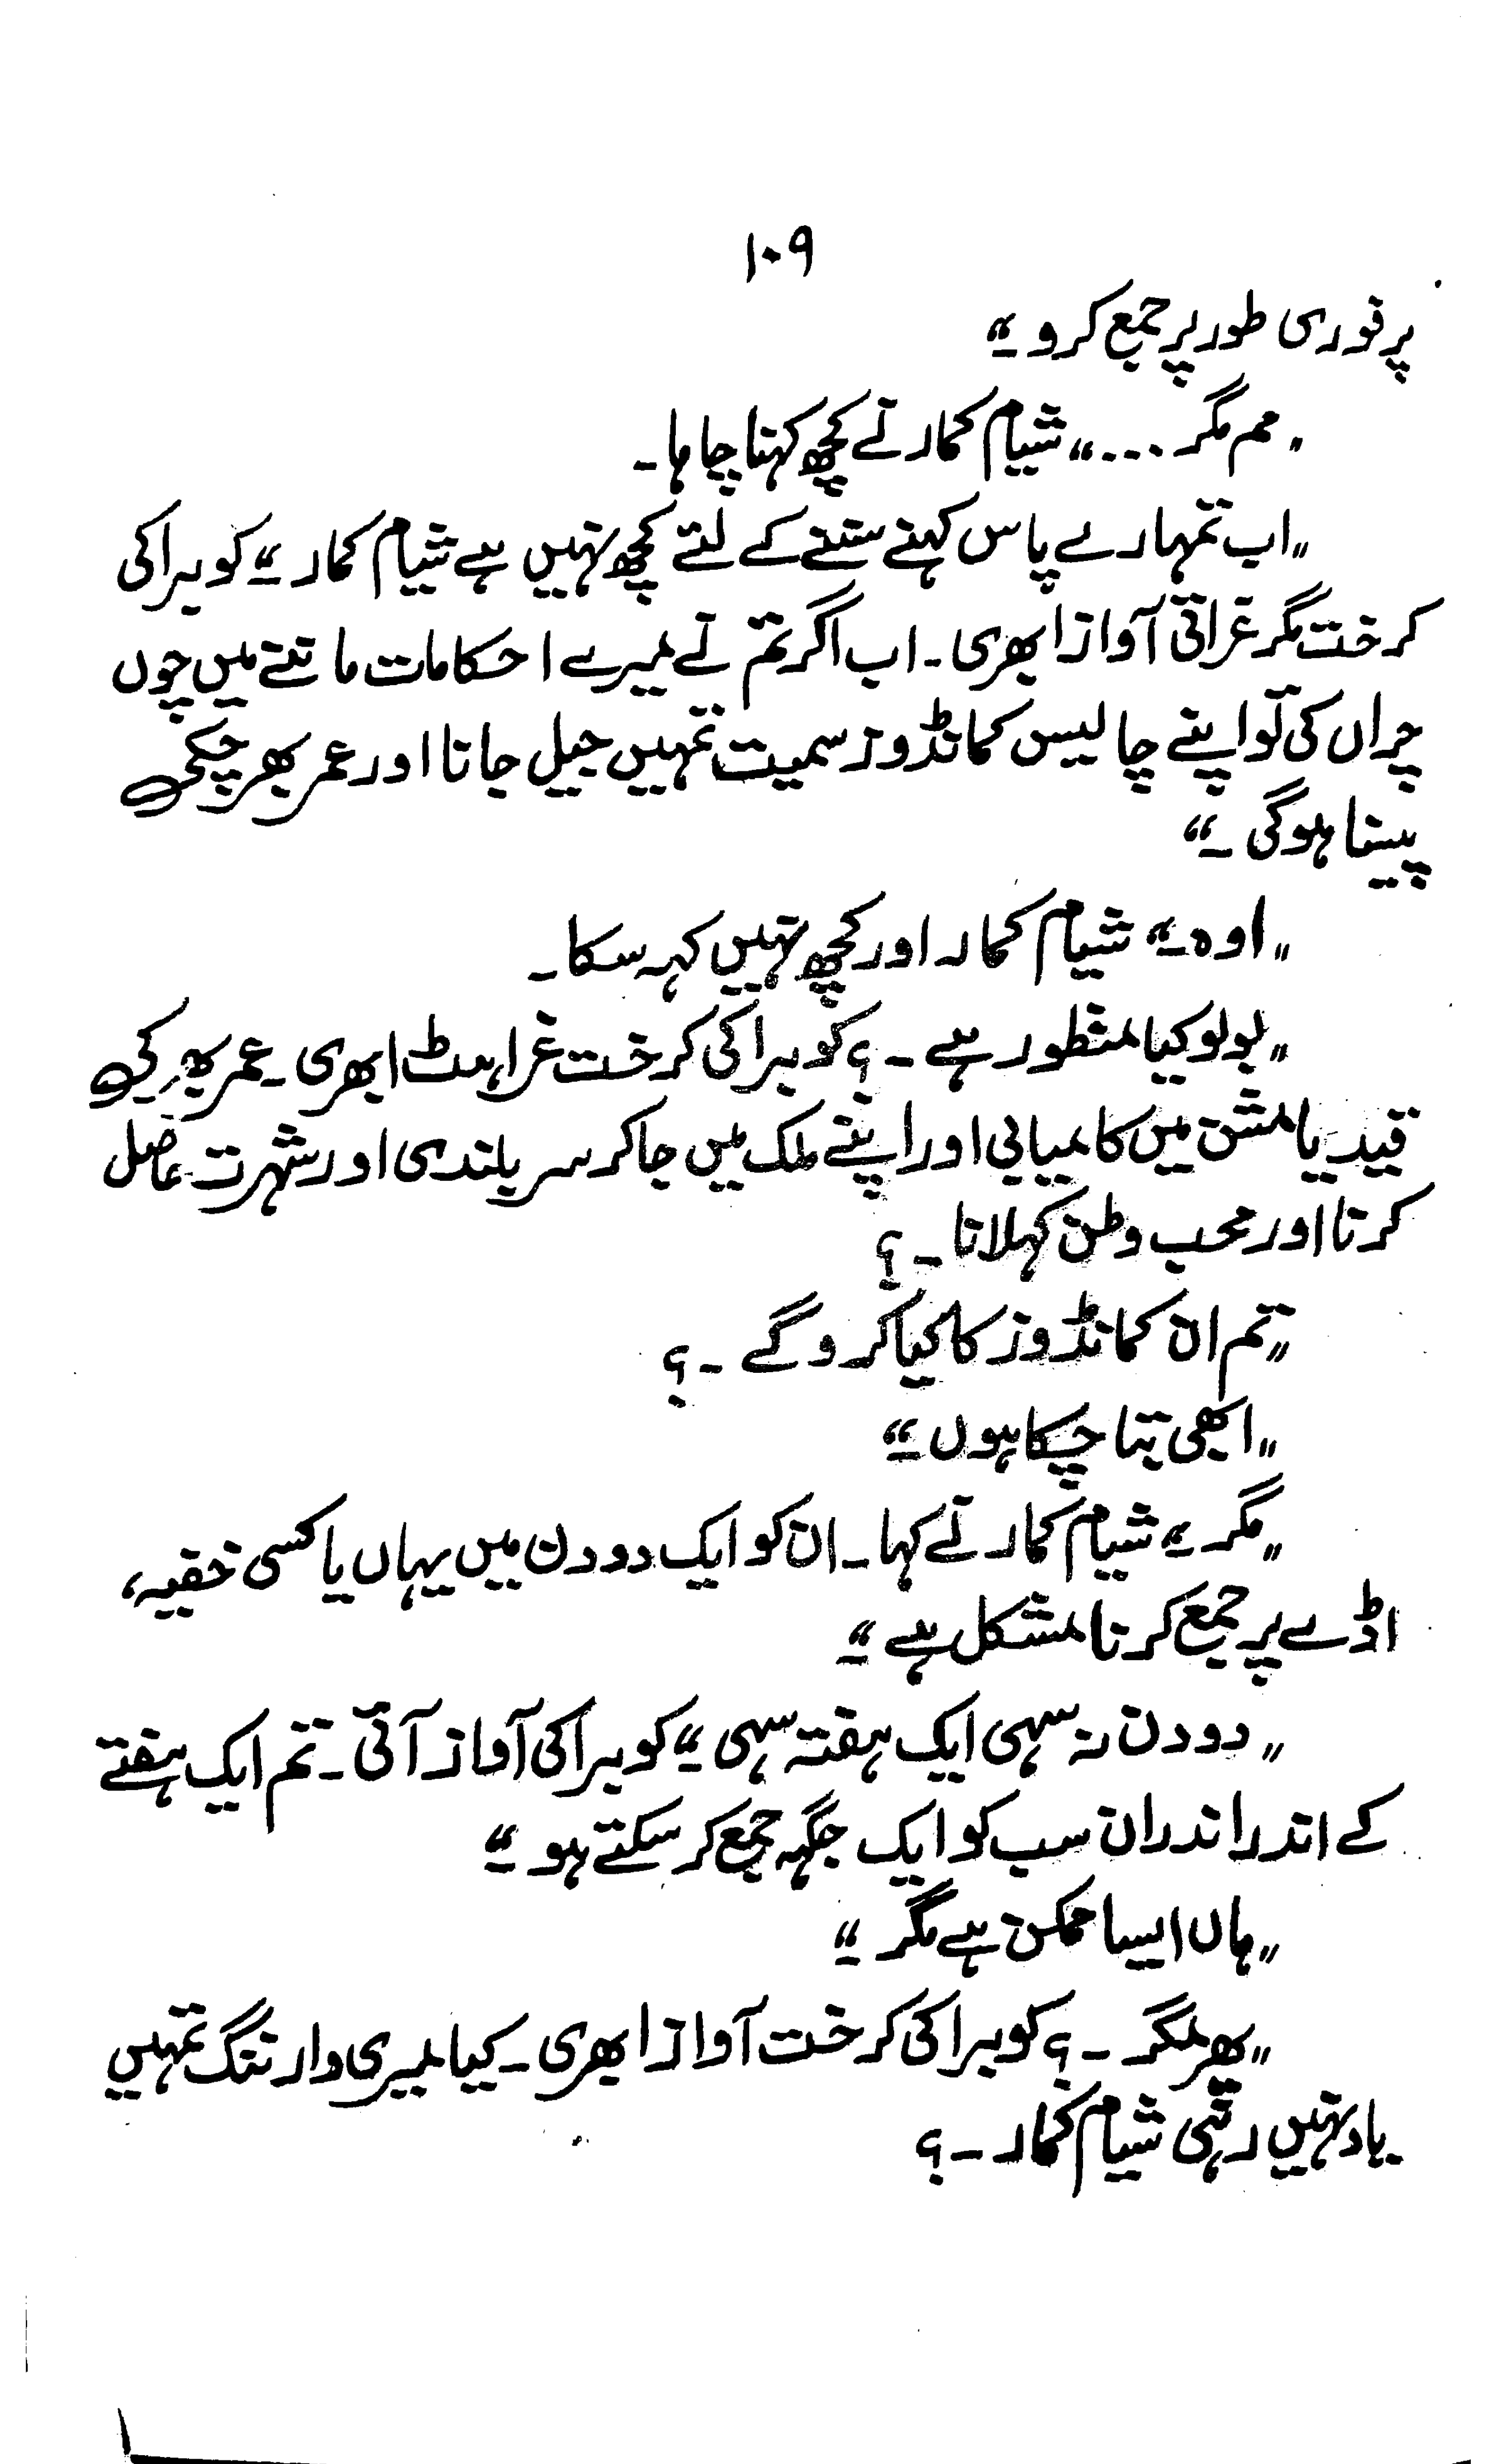 ۱۰۹
پر فوری طور پر جمع کرو۔“
”مم مگر ....“ شیام کمار نے کچھ کہنا چاہا۔
”اب تمہارے پاس کہنے سننے کے لئے کچھ نہیں ہے شیام کمار۔“ کوبرا کی
کرخت مگر غراتی آواز ابھری۔ اب اگر تم نے میرے احکامات ماننے میں چوں
چراں کی تو اپنے چالیس کمانڈوز سمیت تمہیں جیل جانا اور عمر بھر چکی
پیسنا ہوگی۔“
”اوہ۔“ شیام کمار اور کچھ نہیں کہہ سکا۔
”بولو کیا منظور ہے۔؟ کوبرا کی کرخت غراہٹ ابھری۔ عمر بھر کی
قید یا مشن میں کامیابی اور اپنے ملک میں جا کر سر بلندی اور شہرت حاصل
کرنا اور محب وطن کہلانا۔؟
”تم ان کمانڈوز کا کیا کرو گے۔؟
”ابھی بتا چکا ہوں۔“
”مگر۔“ شیام کمار نے کہا۔ ان کو ایک دو دن میں یہاں یا کسی خفیہ،
اڈے پر جمع کرنا مشکل ہے۔“
”دو دن نہ سہی ایک ہفتہ سہی۔“ کوبرا کی آواز آئی۔ تم ایک ہفتے
کے اندر اندر ان سب کو ایک جگہ جمع کر سکتے ہو۔“
”ہاں ایسا ممکن ہے مگر۔“
”پھر مگر۔؟ کوبرا کی کرخت آواز ابھری۔ کیا میری وارننگ تمہیں
یاد نہیں رہی شیام کمار۔؟